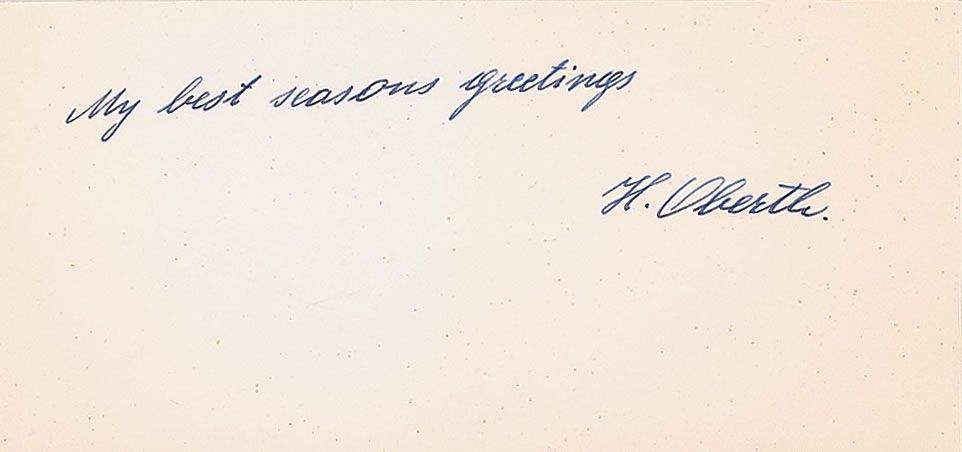 My best seasons greetings
H. Oberth.